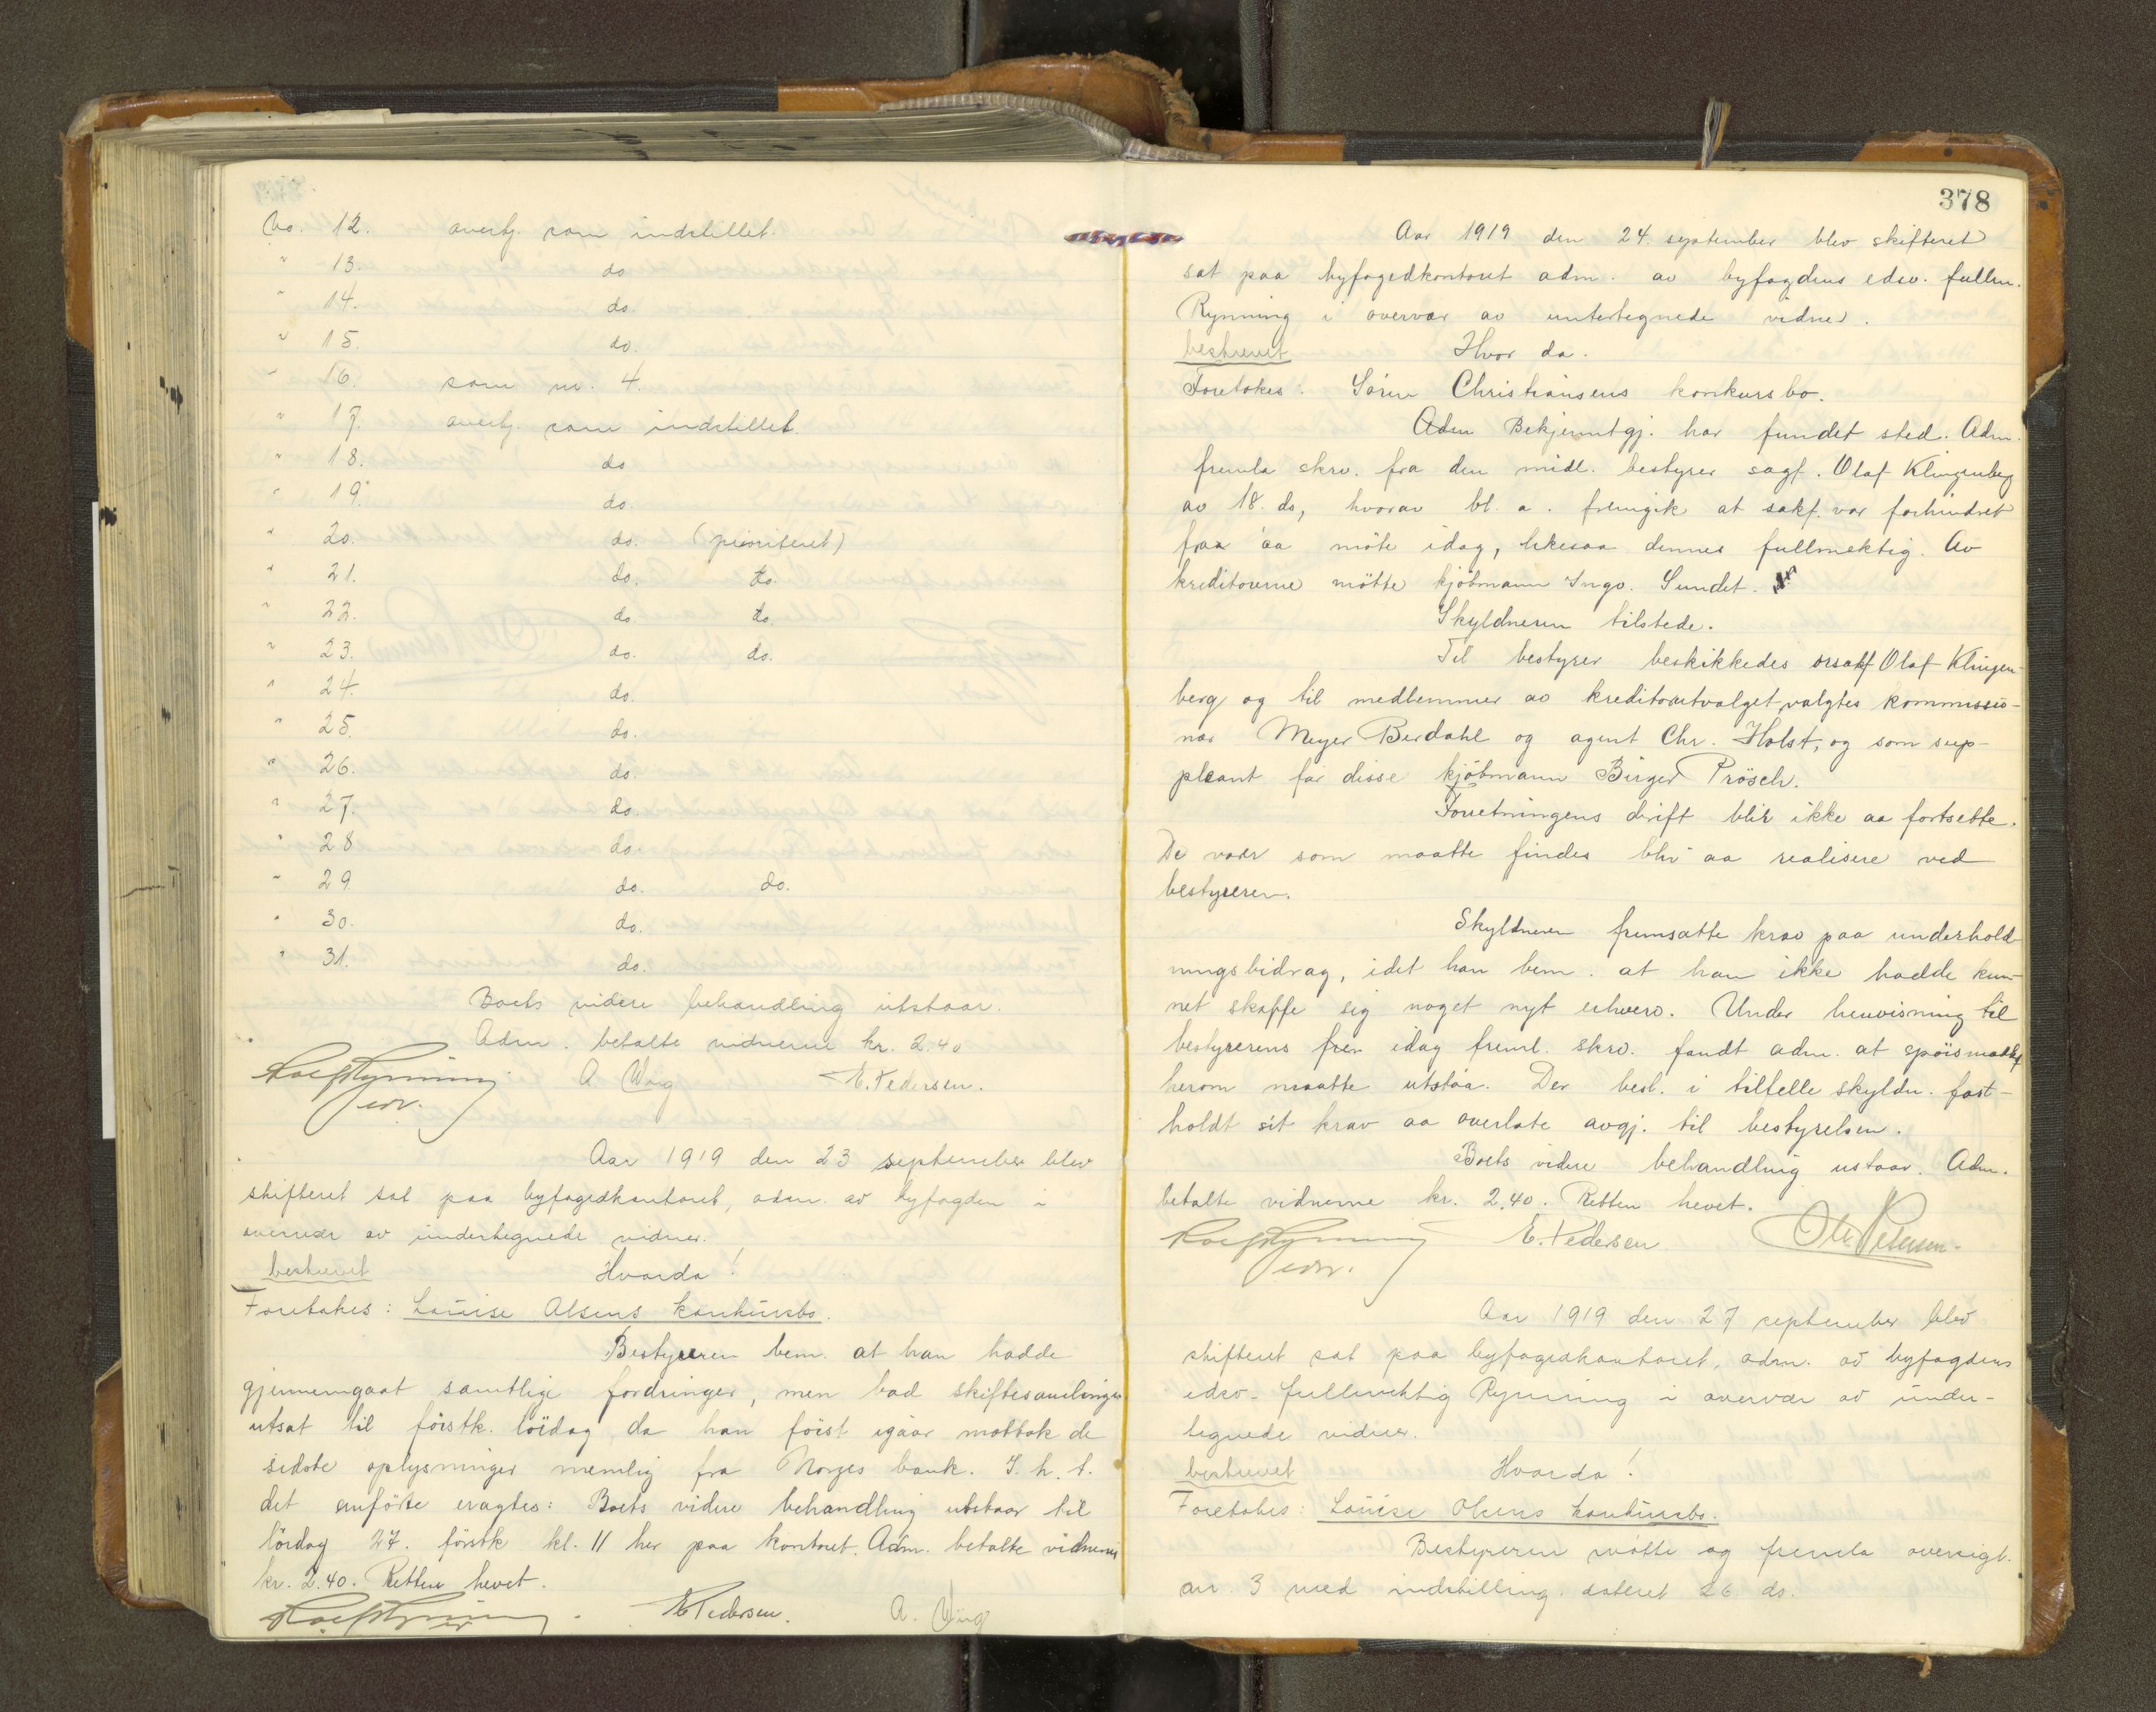 No. 12. avertj. som indstillet.
" 13. do
" 14. do.
" 15. do.
" 16. som nr. 4.
" 17. avertj. som indstillet.
" 18. do
" 19. do.
" 20. do. (prioriteret)
" 21. do. do.
" 22. do. do.
" 23. do. do.
" 24. do.
" 25. do.
" 26. do.
" 27. do.
" 28 do.
" 29. do. do.
" 30. do.
" 31. do.
Boets videre behandling utstaar.
Adm. betalte vidnerne kr. 2.40
Rolf Rynning A Wag E. Pedersen.
edsv.
Aar 1919 den 23 september blev
skifteret sat paa byfogedkontoret, adm. av byfogden i
overvær av undertegnede vidner.
beskrevet Hvorda!
Foretakes: Louise Olsens konkursbo.
Bestyreren bem. at han hadde
gjennemgaat samtlige fordringer, men bad skiftesamlingen
utsat til förstk. lördag da han först igaar mottok de
sidste oplysninger nemlig fra Norges bank. I. h. t.
det anförte eragtes: Boets videre behandling utstaar til
lördag 27. förstk kl. 11 her paa kontoret. Adm. betalte vidnerne
kr. 2.40. Retten hevet.
Rolf Rynning E Pedersen. A. Wag
378
Aar 1919 den 24. september blev skifteret
sat paa byfogedkontoret adm. av byfogdens edsv. fullm.
Rynning i overvær av untertegnede vidner.
beskrevet Hvor da.
Foretakes: Sören Christiansens konkursbo.
Adm Bekjenntgj. har fundet sted. Adm.
fremla skrv. fra den midl. bestyrer sagf. Olaf Klingenberg
av 18. ds, hvorav bl. a. fremgik at sakf. var forhindret
fraa aa möte idag, likesaa dennes fullmektig. Av
kreditorerne mötte kjöbmann Ingv. Sundet.
Skyldneren tilstede.
Til bestyrer beskikkedes orsakf Olaf Klingen-
berg og til medlemmer av kreditorutvalget valgtes kommissio-
nær Meyer Berdahl og agent Chr. Holst, og som sup-
pleant for disse kjöbmann Birger Prösch.
Forretningens drift blir ikke aa fortsette.
De varer som maatte findes blir aa realisere ved
bestyreren.
Skyldneren fremsatte krav paa underhold
ningsbidrag, idet han bem. at han ikke hadde kun-
net skaffe sig noget nyt erhverv. Under henvisning til
bestyrerens frem idag freml. skrv. fandt adm. at spörsmaalet
herom maatte utstaa. Der besl. i tilfelle skyldn. fast-
holdt sit krav aa overlate avgj. til bestyrelsen.
Boets videre behandling ustaar. Adm.
betalte vidnerne kr. 2.40. Retten hevet.
Rolf Rynning E. Pedersen Ole Petersen.
edsv.
Aar 1919 den 27 september blev
skifteret sat paa byfogedkontoret, adm. av byfogdens
edsv. fullmektig Rynning i overvær av under-
tegnede vidner.
beskrevet Hvorda!
Foretakes: Louise Olsens konkursbo.
Bestyreren mötte og fremla oversigt.
nr. 3 med indstilling. dateret 26 ds.